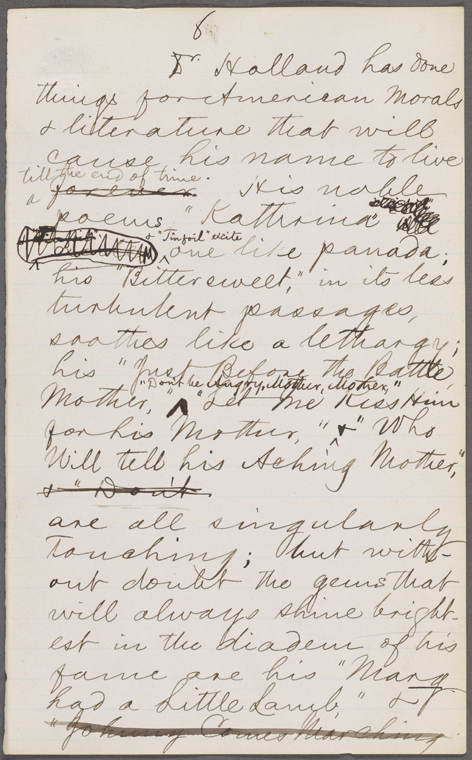 6
Dr. Holland has done
things for American Morals
& literature that will
cause his name to live
till the end of time.
forever. His noble
poems "Kathrina"
& "Tinfoil" excite
one like panada;
his "Bittersweet," in its less
turbulent passages,
soothes like a lethargy;
his "Just Before the Battle
"Don't be Angry, Mother, Mother,"
Mother," "Let Me Kiss Him
for his Mother," & "Who
Will tell his Aching Mother,"
& "Don't
are all singularly
touching; but with-
out doubt the gems that
will always shine bright-
est in the diadem of his
fame are his "Mary
had a Little Lamb" &
"Johnny Comes Marching